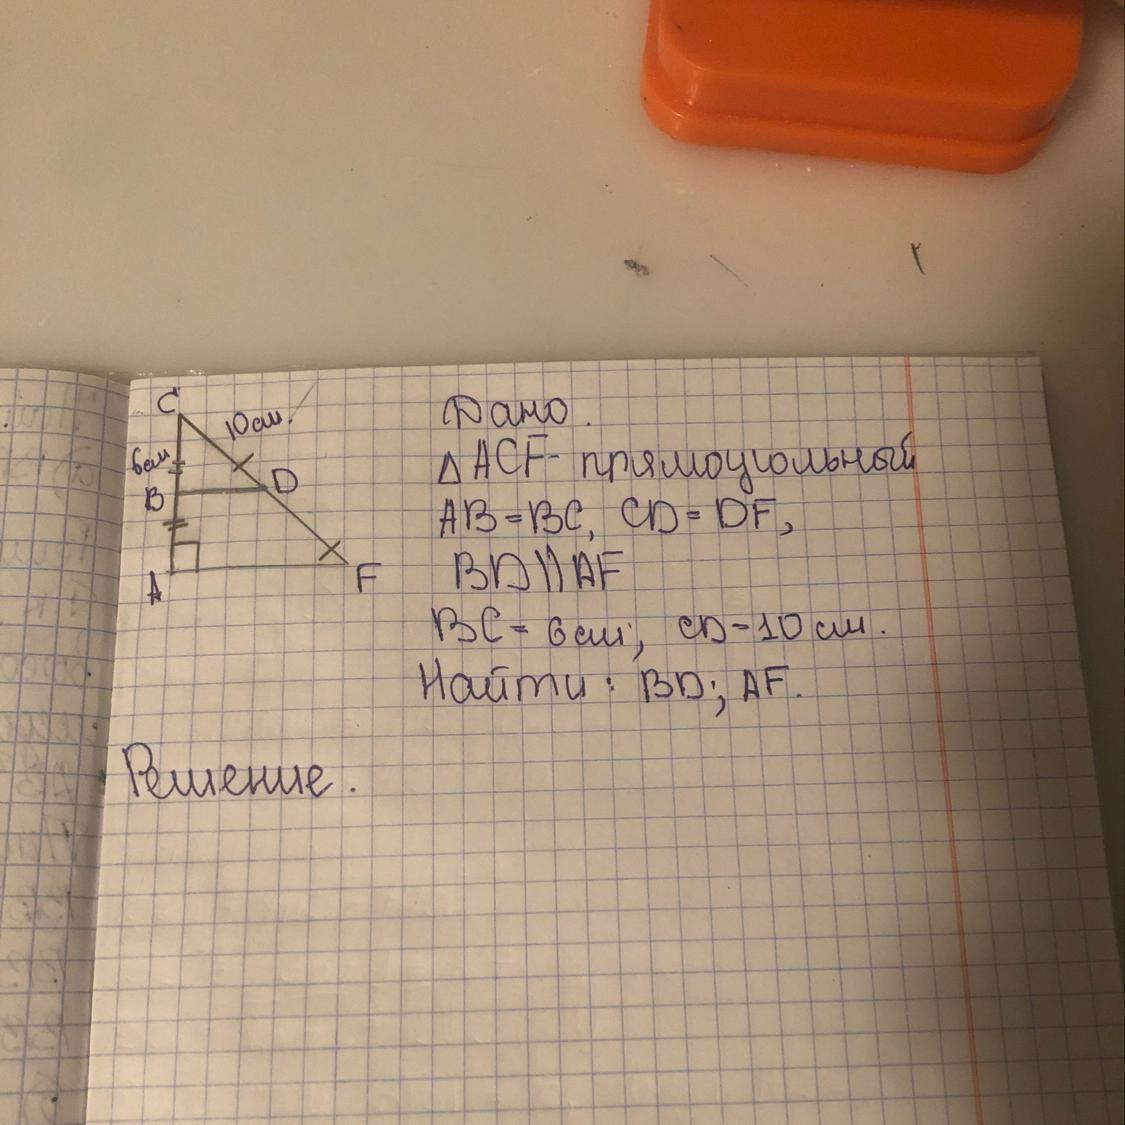 C
10см.
6см
B
D
A
F
Дано.
△ACF- прямоугольный
AB=BC, CD=DF,
BD||AF
BC= 6см; CD=10 см.
Найти: BD; AF.
Решение.